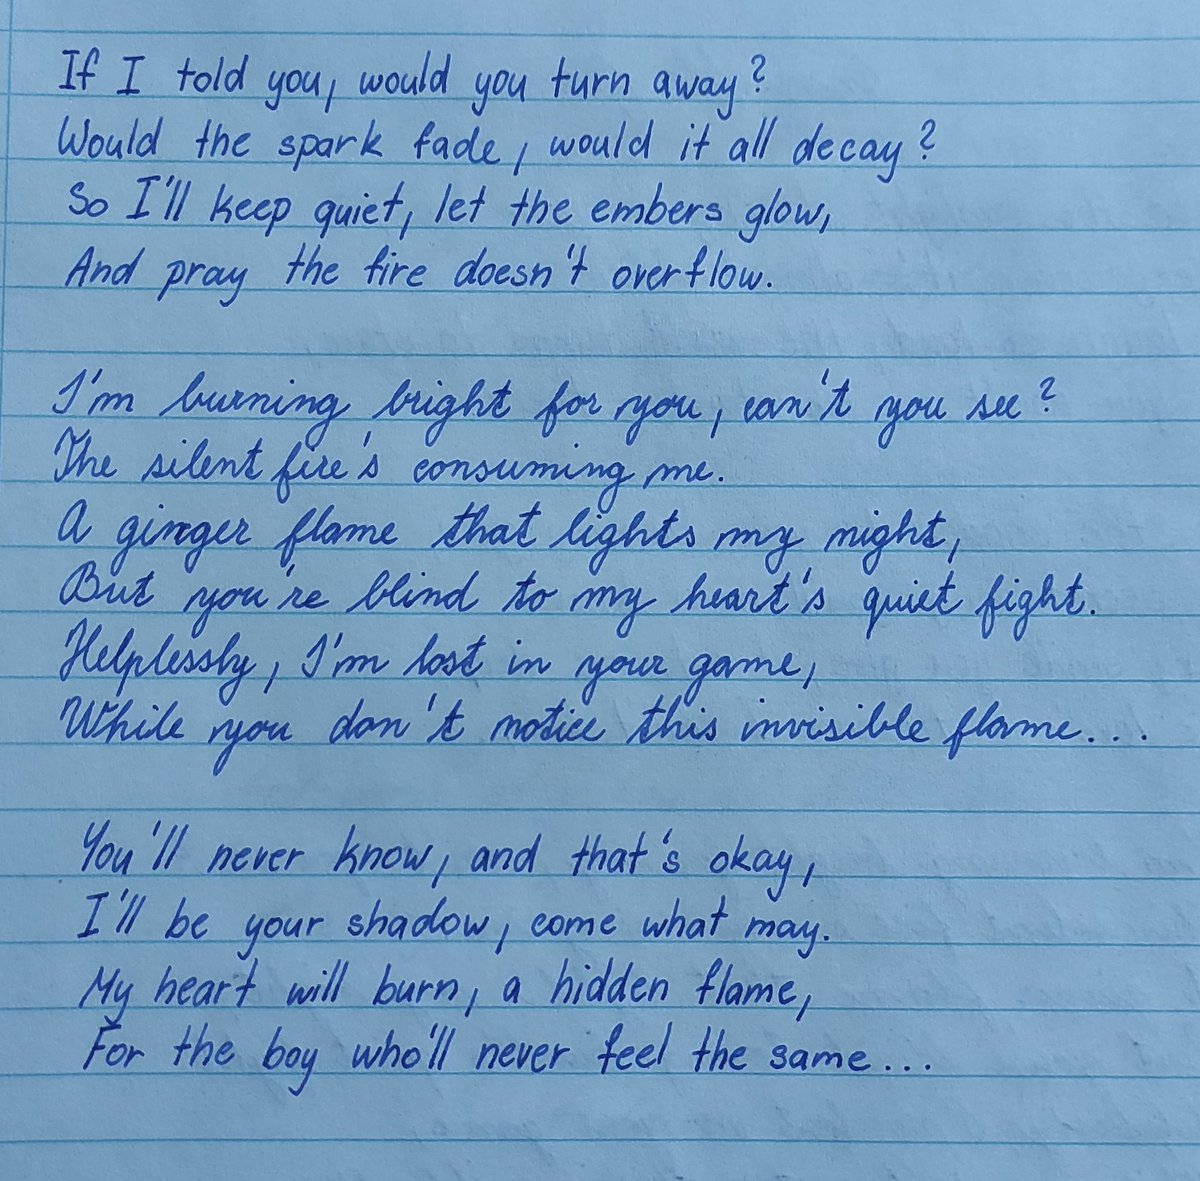 If I told you, would you turn away?
Would the spark fade, would it all decay?
So I'll keep quiet, let the embers glow,
And pray the fire doesn't overflow.
I'm burning bright for you, can't you see?
The silent fire's consuming me.
A ginger flame that lights my night,
But you're blind to my heart's quiet fight.
Helplessly, I'm lost in your game,
While you don't notice this invisible flame...
You'll never know, and that's okay,
I'll be your shadow, come what may.
My heart will burn, a hidden flame,
For the boy who'll never feel the same...